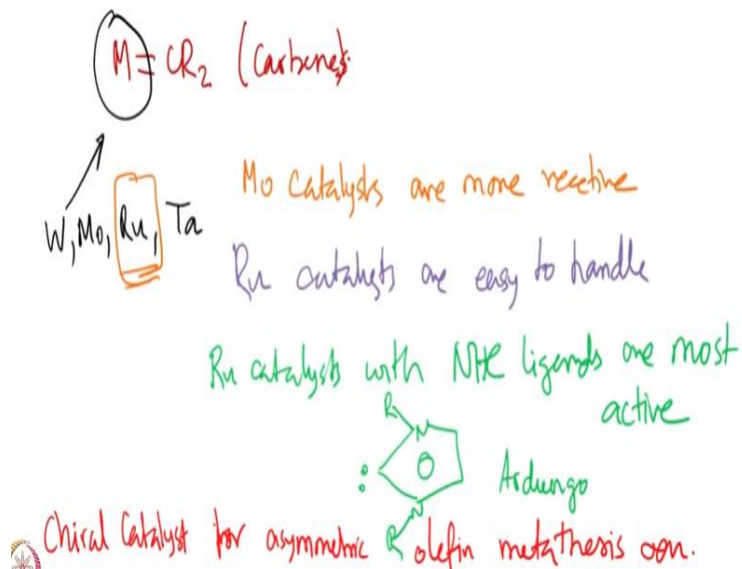 M=CR2 (Carbenes)
W, Mo, Ru, Ta
Mo Catalysts are more reactive
Ru catalysts are easy to handle
Ru catalysts with NHC ligands are most
active
R
N
Arduengo
N
R
Chiral Catalyst for asymmetric olefin metathesis